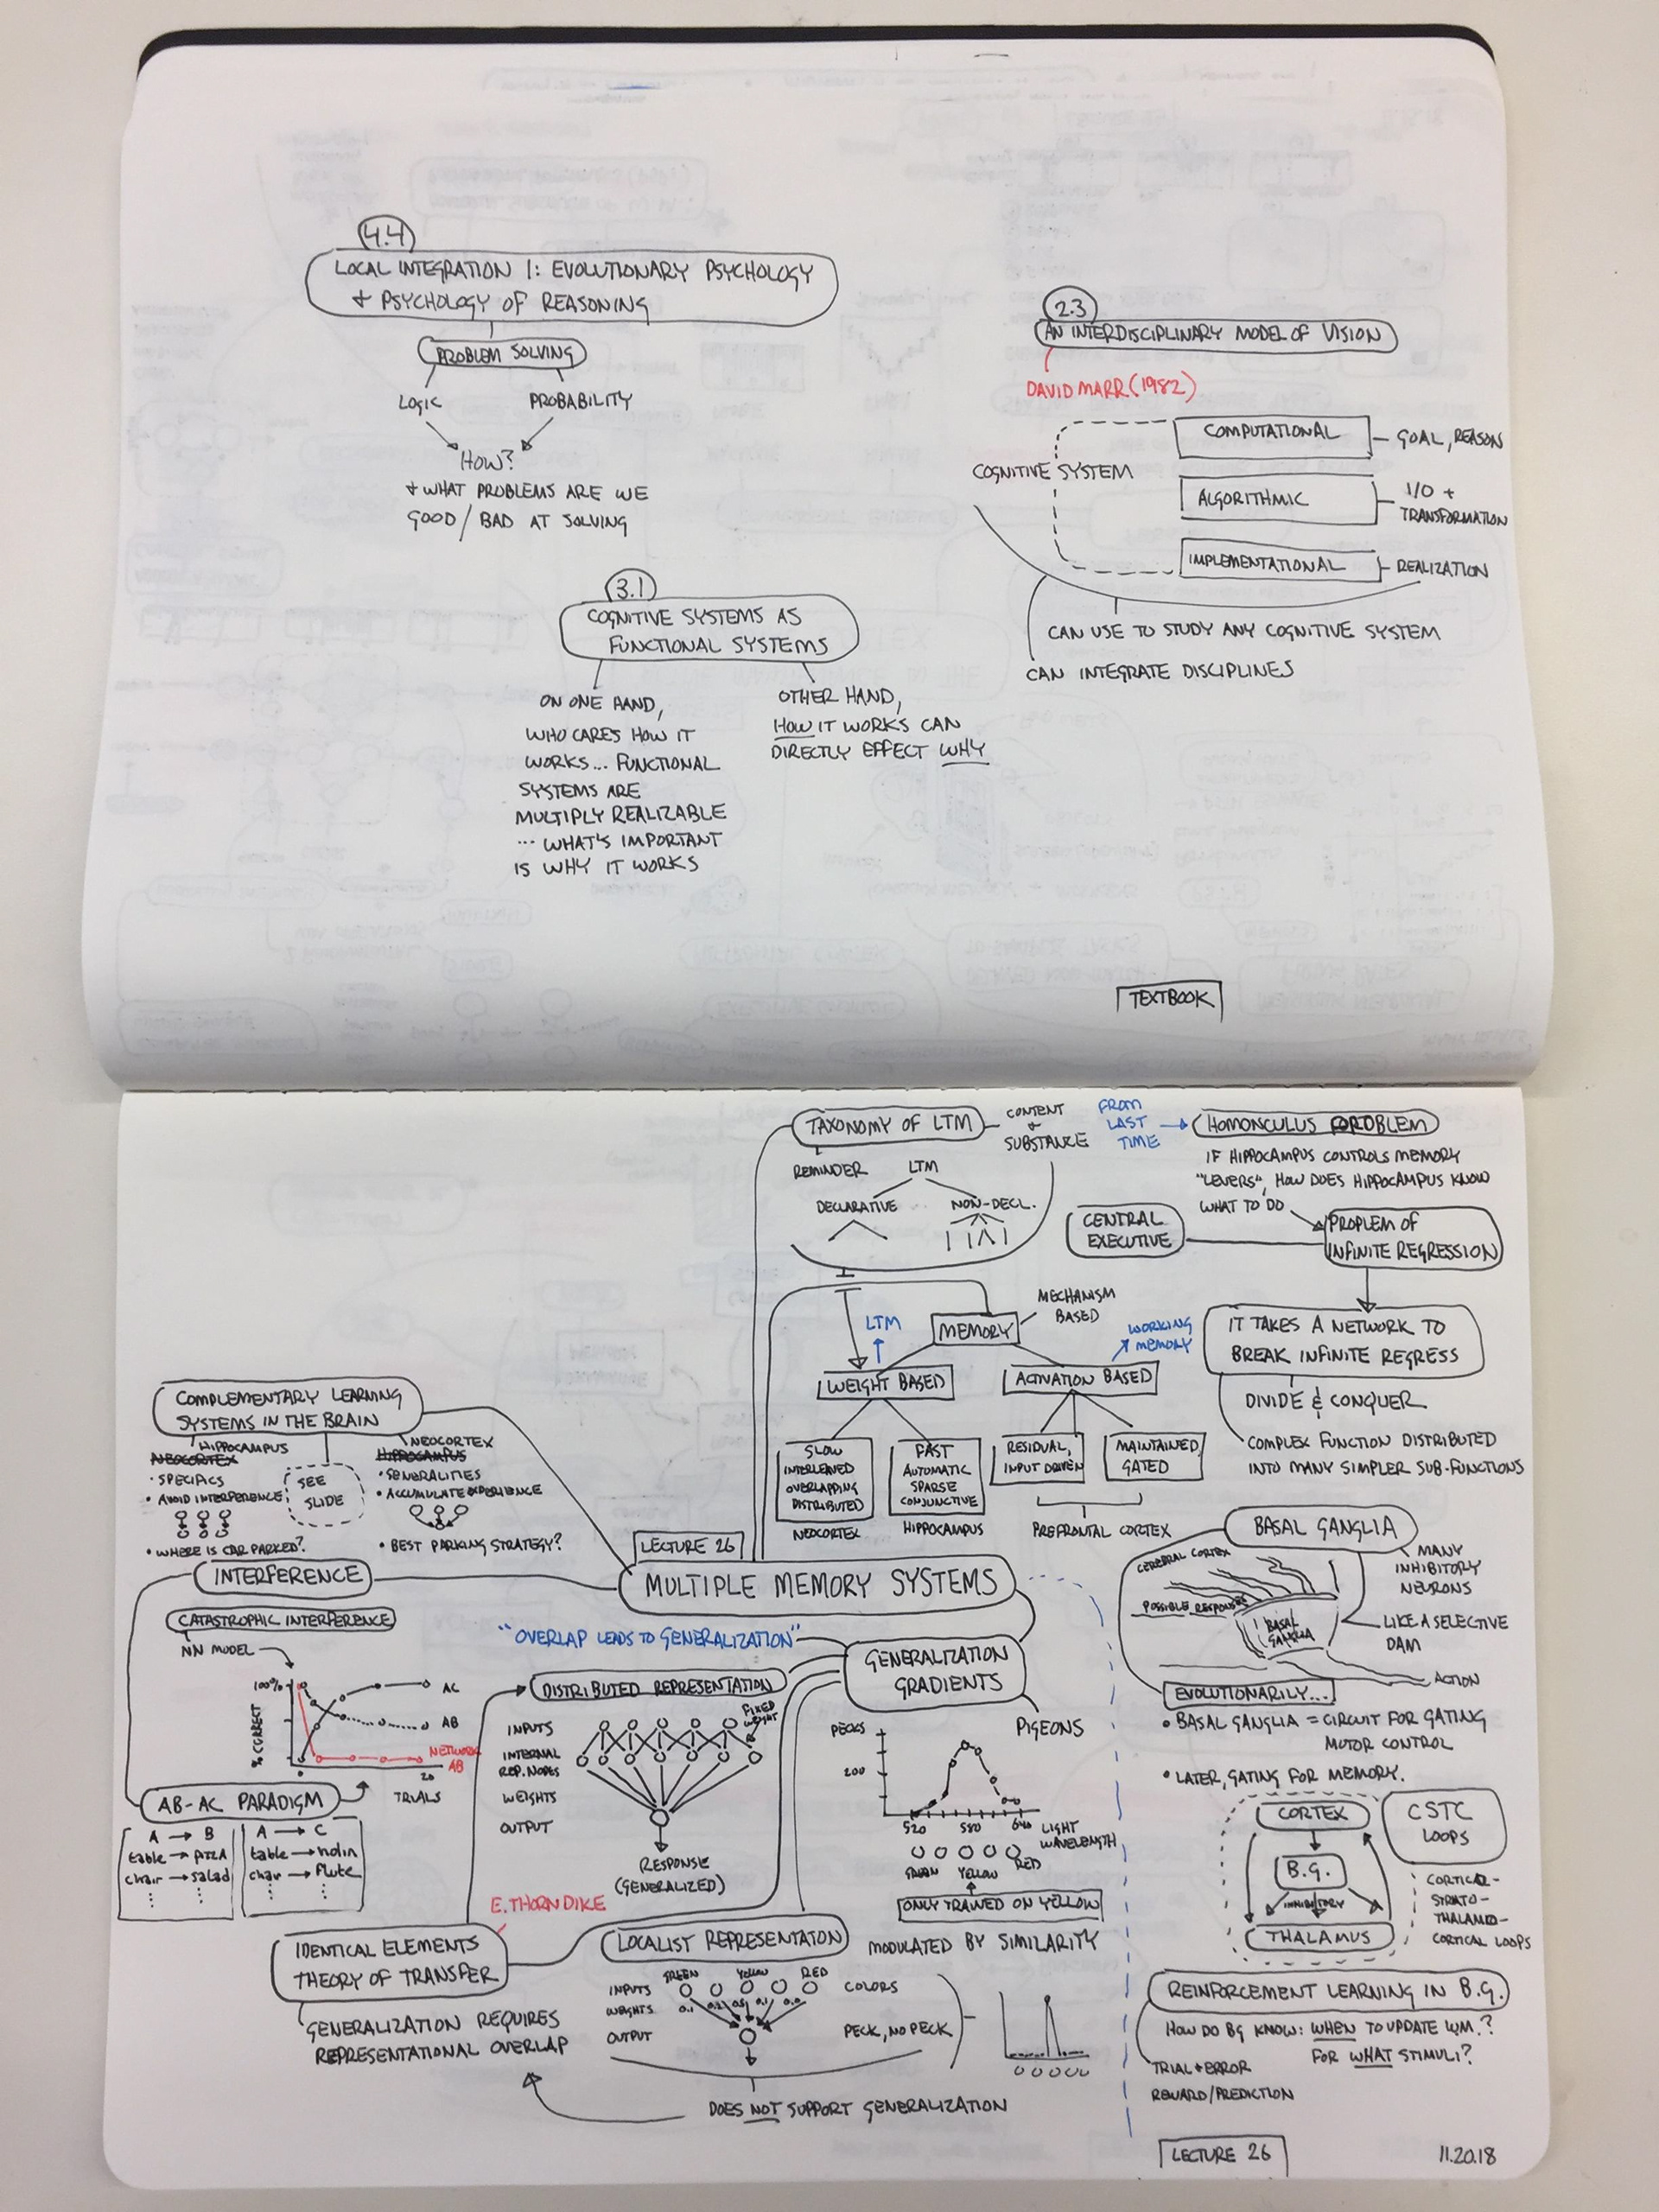 4.4
LOCAL INTEGRATION 1: EVOLUTIONARY PSYCHOLOGY
+ PSYCHOLOGY OF REASONING
PROBLEM SOLVING
LOGIC
PROBABILITY
HOW?
+ WHAT PROBLEMS ARE WE
GOOD / BAD AT SOLVING
2.3
AN INTERDISCIPLINARY MODEL OF VISION
DAVID MARR (1982)
COGNITIVE SYSTEM
COMPUTATIONAL
GOAL, REASON
ALGORITHMIC
I/O +
TRANSFORMATION
IMPLEMENTATIONAL
REALIZATION
CAN USE TO STUDY ANY COGNITIVE SYSTEM
CAN INTEGRATE DISCIPLINES
3.1
COGNITIVE SYSTEMS AS
FUNCTIONAL SYSTEMS
ON ONE HAND,
WHO CARES HOW IT
WORKS... FUNCTIONAL
SYSTEMS ARE
MULTIPLY REALIZABLE
... WHAT'S IMPORTANT
IS WHY IT WORKS
OTHER HAND,
HOW IT WORKS CAN
DIRECTLY EFFECT WHY
TEXTBOOK
TAXONOMY OF LTM
CONTENT
+
SUBSTANCE
REMINDER
LTM
DECLARATIVE
NON-DECL.
FROM
LAST
TIME
HOMONCULUS PROBLEM
IF HIPPOCAMPUS CONTROLS MEMORY
"LEVERS", HOW DOES HIPPOCAMPUS KNOW
WHAT TO DO
CENTRAL
EXECUTIVE
PROPLEM OF
INFINITE REGRESSION
IT TAKES A NETWORK TO
BREAK INFINITE REGRESS
DIVIDE & CONQUER
COMPLEX FUNCTION DISTRIBUTED
INTO MANY SIMPLER SUB-FUNCTIONS
MEMORY
MECHANISM
BASED
LTM
WORKING
MEMORY
WEIGHT BASED
ACTIVATION BASED
SLOW
INTERLEAVED
OVERLAPPING
DISTRIBUTED
NEOCORTEX
FAST
AUTOMATIC
SPARSE
CONJUNCTIVE
HIPPOCAMPUS
RESIDUAL,
INPUT DRIVEN
MAINTAINED,
GATED
PREFRONTAL CORTEX
COMPLEMENTARY LEARNING
SYSTEMS IN THE BRAIN
HIPPOCAMPUS
NEOCORTEX
• SPECIFICS
• AVOID INTERFERENCE
• WHERE IS CAR PARKED?
SEE
SLIDE
NEOCORTEX
HIPPOCAMPUS
• GENERALITIES
• ACCUMULATE EXPERIENCE
• BEST PARKING STRATEGY?
LECTURE 26
MULTIPLE MEMORY SYSTEMS
INTERFERENCE
CATASTROPHIC INTERFERENCE
NN MODEL
100%
% CORRECT
AC
AB
NETWORK
AB
20
TRIALS
AB-AC PARADIGM
A → B
table → pizza
chair → salad
⋮ ⋮
A → C
table → violin
chair → flute
⋮ ⋮
"OVERLAP LEADS TO GENERALIZATION"
GENERALIZATION
GRADIENTS
DISTRIBUTED REPRESENTATION
INPUTS
INTERNAL
REP. NODES
WEIGHTS
OUTPUT
FIXED
WEIGHT
RESPONSE
(GENERALIZED)
PIGEONS
PECKS
200
520 580 640
LIGHT
WAVELENGTH
GREEN YELLOW RED
ONLY TRAINED ON YELLOW
MODULATED BY SIMILARITY
E. THORNDIKE
IDENTICAL ELEMENTS
THEORY OF TRANSFER
GENERALIZATION REQUIRES
REPRESENTATIONAL OVERLAP
LOCALIST REPRESENTATION
GREEN Yellow RED
INPUTS
COLORS
WEIGHTS
OUTPUT
PECK, NO PECK
DOES NOT SUPPORT GENERALIZATION
BASAL GANGLIA
MANY
INHIBITORY
NEURONS
CEREBRAL CORTEX
POSSIBLE RESPONSES
BASAL
GANGLIA
LIKE A SELECTIVE
DAM
ACTION
EVOLUTIONARILY...
• BASAL GANGLIA = CIRCUIT FOR GATING
MOTOR CONTROL
• LATER, GATING FOR MEMORY.
CORTEX
B.G.
INHIBITORY
THALAMUS
CSTC
LOOPS
CORTICAL-
STRATO-
THALAMO-
CORTICAL LOOPS
REINFORCEMENT LEARNING IN B.G.
HOW DO BG KNOW: WHEN TO UPDATE W.M.?
FOR WHAT STIMULI?
TRIAL + ERROR
REWARD/PREDICTION
LECTURE 26
11.20.18